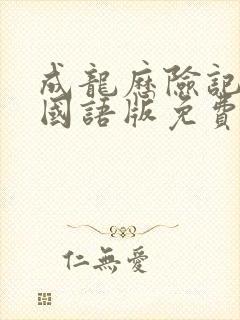 成龍歷險記
國語版免費
仁無愛